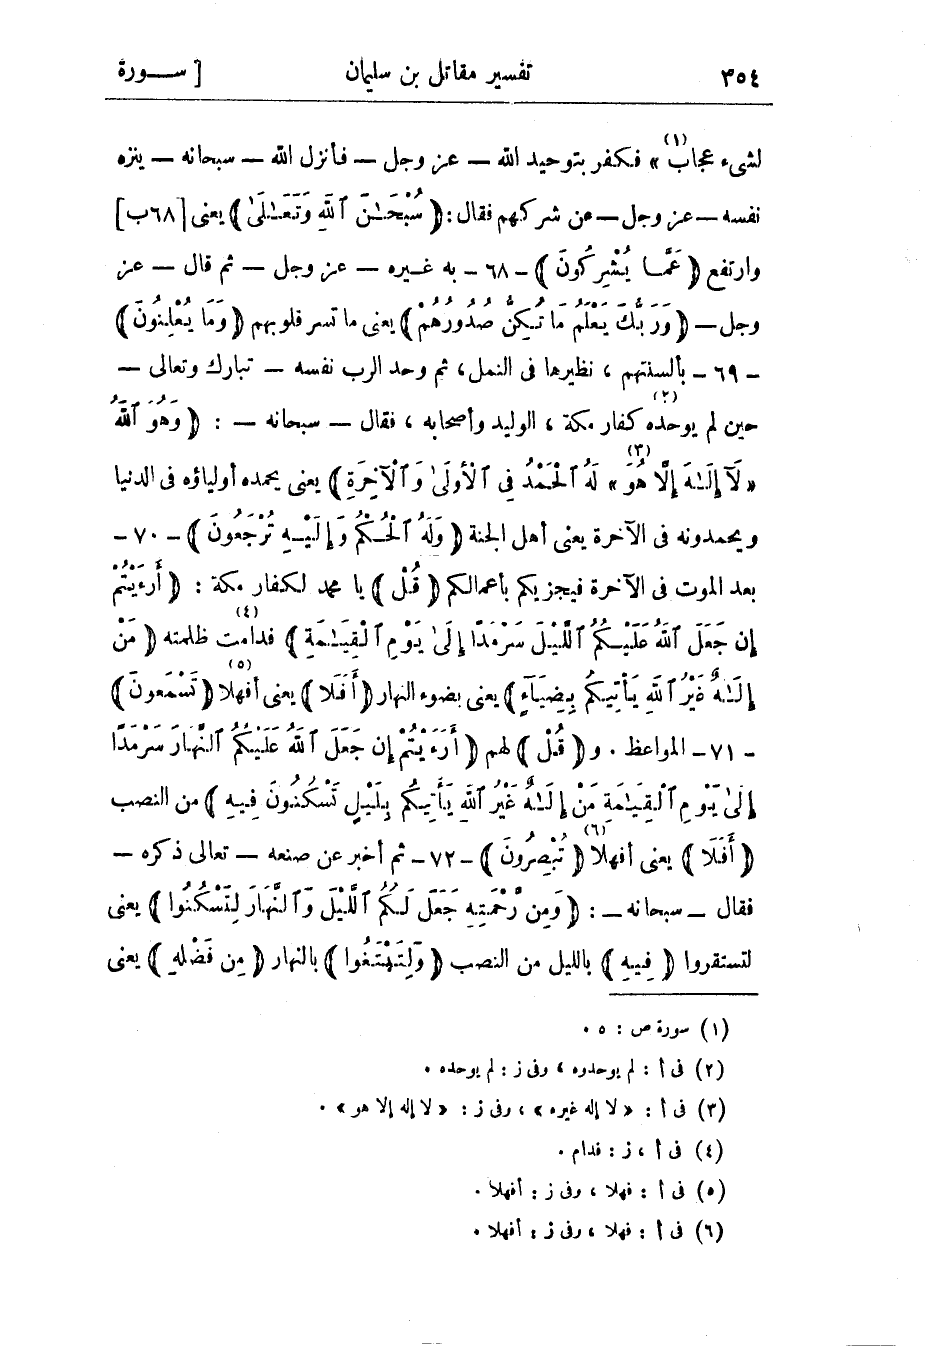 ٣٥٤ تفسير مقاتل بن سليمان [ ســورة
لشىء عجاب(١) » فكفر بتوحيد الله — عز وجل — فأنزل الله — سبحانه — ينزه
نفسه — عز وجل — عن شركهم فقال : ( سُبْحَـٰنَ ٱللَّهِ وَتَعَـٰلَىٰ ) يعنى [ ٦٨ ب ]
وارتفع ( عَمَّا يُشْرِكُونَ ) - ٦٨ - به غيره — عز وجل — ثم قال — عز
وجل — ( وَرَبُّكَ يَعْلَمُ مَا تُكِنُّ صُدُورُهُمْ ) يعنى ما تسر قلوبهم ( وَمَا يُعْلِنُونَ )
- ٦٩ - بألسنتهم ، نظيرها فى النمل ، ثم وحد الرب نفسه — تبارك وتعالى —
حين لم يوحده(٢) كفار مكة ، الوليد وأصحابه ، فقال — سبحانه — : ( وَهُوَ ٱللَّهُ
« لَآ إِلَـٰهَ إِلَّا هُوَ »(٣) لَهُ ٱلْحَمْدُ فِى ٱلْأُولَىٰ وَٱلْآخِرَةِ ) يعنى يحمده أولياؤه فى الدنيا
ويحمدونه فى الآخرة يعنى أهل الجنة ( وَلَهُ ٱلْحُكْمُ وَإِلَيْهِ تُرْجَعُونَ ) - ٧٠ -
بعد الموت فى الآخرة فيجزيكم بأعمالكم ( قُلْ ) يا محمد لكفار مكة : ( أَرَءَيْتُمْ
إِن جَعَلَ ٱللَّهُ عَلَيْكُمُ ٱلَّيْلَ سَرْمَدًا إِلَىٰ يَوْمِ ٱلْقِيَـٰمَةِ ) فدامت(٤) ظلمته ( مَنْ
إِلَـٰهٌ غَيْرُ ٱللَّهِ يَأْتِيكُم بِضِيَآءٍ ) يعنى بضوء النهار ( أَفَلَا ) يعنى أفهلا(٥) ( تَسْمَعُونَ )
- ٧١ - المواعظ . و ( قُلْ ) لهم ( أَرَءَيْتُمْ إِن جَعَلَ ٱللَّهُ عَلَيْكُمُ ٱلنَّهَارَ سَرْمَدًا
إِلَىٰ يَوْمِ ٱلْقِيَـٰمَةِ مَنْ إِلَـٰهٌ غَيْرُ ٱللَّهِ يَأْتِيكُم بِلَيْلٍ تَسْكُنُونَ فِيهِ ) من النصب
( أَفَلَا ) يعنى أفهلا(٦) ( تُبْصِرُونَ ) - ٧٢ - ثم أخبر عن صنعه — تعالى ذكره —
فقال — سبحانه — : ( وَمِن رَّحْمَتِهِ جَعَلَ لَكُمُ ٱلَّيْلَ وَٱلنَّهَارَ لِتَسْكُنُوا ) يعنى
لتستقروا ( فِيهِ ) بالليل من النصب ( وَلِتَبْتَغُوا ) بالنهار ( مِن فَضْلِهِ ) يعنى
(١) سورة ص : ٥ .
(٢) فى أ : لم يوحدوه ، وفى ز : لم يوحده .
(٣) فى أ : « لا إله غيره » ، وفى ز : « لا إله إلا هو » .
(٤) فى أ ، ز : فدام .
(٥) فى أ : فهلا ، وفى ز : أفهلا .
(٦) فى أ : فهلا ، وفى ز : أفهلا .